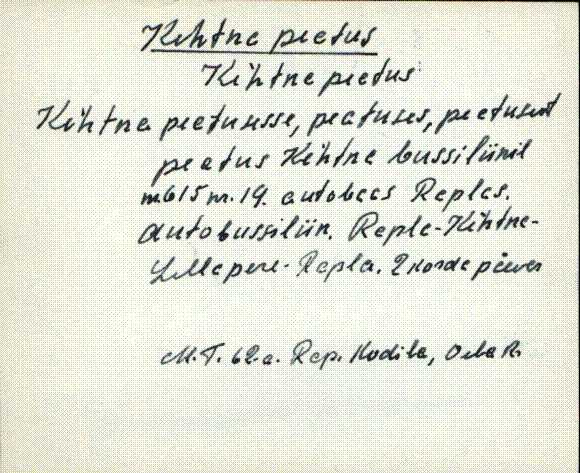 Kehtna peatus
Kehtna peatus
Kehtna peatusesse, peatuses, peatusest
peatus Kehtna bussiliinil
nr. 19. autobaas Raplas.
autobussiliin. Rapla-Kehtna-
Lellapere-Rapla. 2 korda päevas
M.T. 62.a. Rap. Kodila,